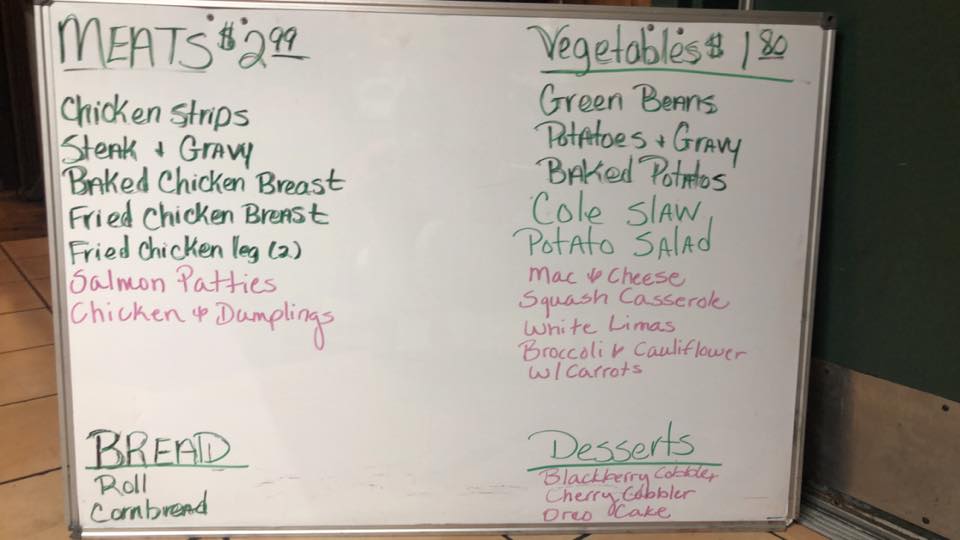 MEATS $2.99
Chicken Strips
Steak & Gravy
Baked Chicken Breast
Fried Chicken Breast
Fried Chicken leg (2)
Salmon Patties
Chicken & Dumplings
BREAD
Roll
Cornbread
Vegetables $1.80
Green Beans
Potatoes & Gravy
Baked Potatos
Cole Slaw
Potato Salad
Mac & Cheese
Squash Casserole
White Limas
Broccoli & Cauliflower
w/ Carrots
Desserts
Blackberry Cobbler
Cherry Cobbler
Oreo Cake